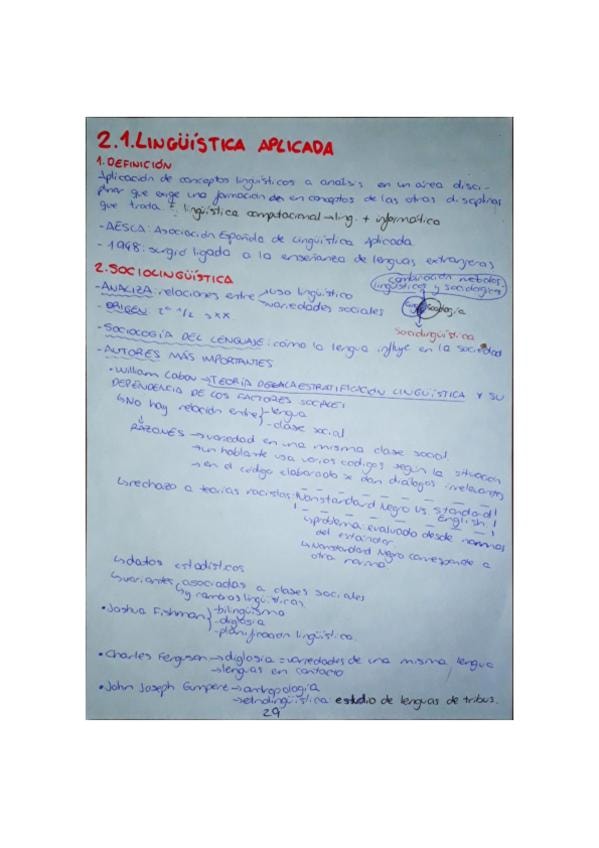 2.1. LINGÜÍSTICA APLICADA
1. DEFINICIÓN
Aplicación de conceptos lingüísticos a análisis en un área disci-
plinar que exige una formación en conceptos de las otras disciplinas
que trata. lingüística computacional → ling. + informática
- AESLA: Asociación Española de Lingüística Aplicada
- 1948: surgió ligado a la enseñanza de lenguas extranjeras
2. SOCIOLINGÜÍSTICA
combinación métodos
lingüísticos y sociológicos
- ANALIZA: relaciones entre → uso lingüístico
→ variedades sociales
Ling. Sociología
- ORIGEN: 2ª 1/2 s.XX
Sociolingüística
- SOCIOLOGÍA DEL LENGUAJE: cómo la lengua influye en la sociedad
- AUTORES MÁS IMPORTANTES
• William Labov → TEORÍA DE LA ESTRATIFICACIÓN LINGÜÍSTICA Y SU
DEPENDENCIA DE LOS FACTORES SOCIALES
↳ No hay relación entre - lengua
- clase social
RAZONES → variedad en una misma clase social
→ un hablante usa varios códigos según la situación
→ en el código elaborado se dan diálogos irrelevantes
↳ rechazo a teorías racistas: Nonstandard Negro vs. Standard
English
↳ problema: evaluado desde normas
del estándar
↳ Nonstandard Negro corresponde a
otra norma
↳ datos estadísticos
↳ variantes asociadas a clases sociales
↳ y cambios lingüísticos
• Joshua Fishman - bilingüismo
- diglosia
- planificación lingüística
• Charles Ferguson → diglosia = variedades de una misma lengua
→ lenguas en contacto
• John Joseph Gumperz → antropología
→ etnolingüística: estudio de lenguas de tribus.
29